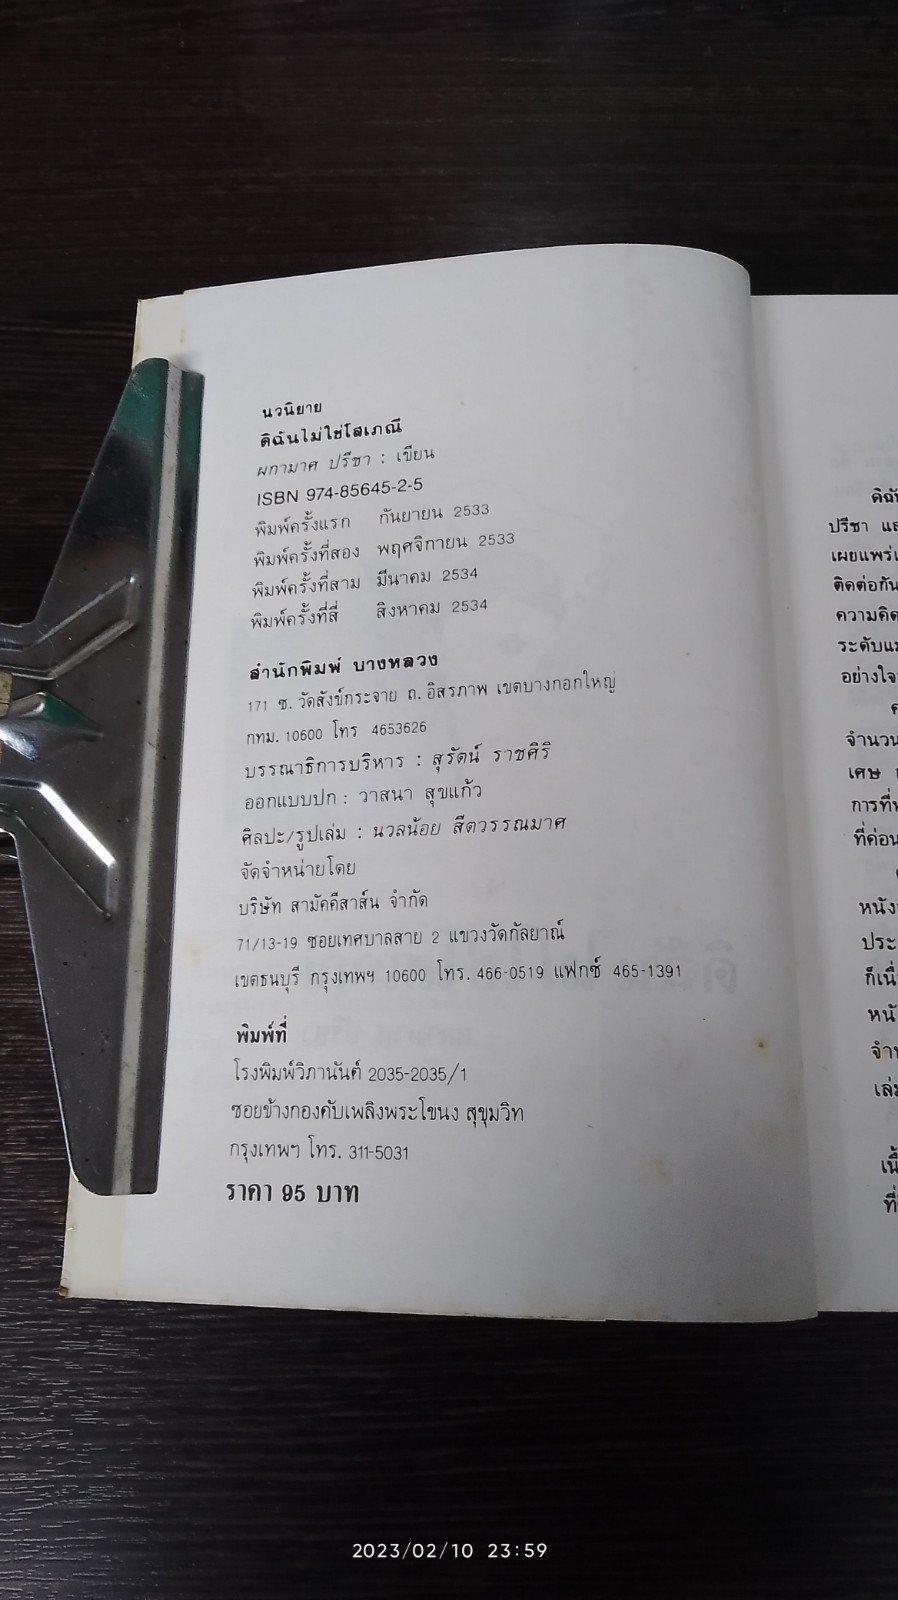 นวนิยาย
ดิฉันไม่ใช่โสเภณี
ผกามาศ ปรีชา : เขียน
ISBN 974-85645-2-5
พิมพ์ครั้งแรก กันยายน 2533
พิมพ์ครั้งที่สอง พฤศจิกายน 2533
พิมพ์ครั้งที่สาม มีนาคม 2534
พิมพ์ครั้งที่สี่ สิงหาคม 2534
สำนักพิมพ์ บางหลวง
171 ซ. วัดสังข์กระจาย ถ. อิสรภาพ เขตบางกอกใหญ่
กทม. 10600 โทร 4653626
บรรณาธิการบริหาร : สุรัตน์ ราชศิริ
ออกแบบปก : วาสนา สุขแก้ว
ศิลปะ/รูปเล่ม : นวลน้อย สีตวรรณมาศ
จัดจำหน่ายโดย
บริษัท สามัคคีสาส์น จำกัด
71/13-19 ซอยเทศบาลสาย 2 แขวงวัดกัลยาณ์
เขตธนบุรี กรุงเทพฯ 10600 โทร. 466-0519 แฟกซ์ 465-1391
พิมพ์ที่
โรงพิมพ์วิภานันต์ 2035-2035/1
ซอยข้างกองดับเพลิงพระโขนง สุขุมวิท
กรุงเทพฯ โทร. 311-5031
ราคา 95 บาท
ปรีชา
ติดต่อกัน
จำนวน
เศษ
2023/02/10 23:59